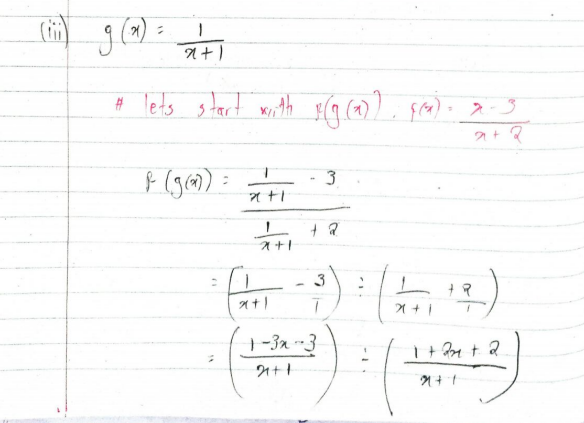 (iii) g(x) = 1/(x+1)
# lets start with f(g(x)). f(x) = (x-3)/(x+2)
f(g(x)) = (1/(x+1) - 3)/(1/(x+1) + 2)
= (1/(x+1) - 3/1) ÷ (1/(x+1) + 2/1)
= ((1-3x-3)/(x+1)) ÷ ((1+2x+2)/(x+1))